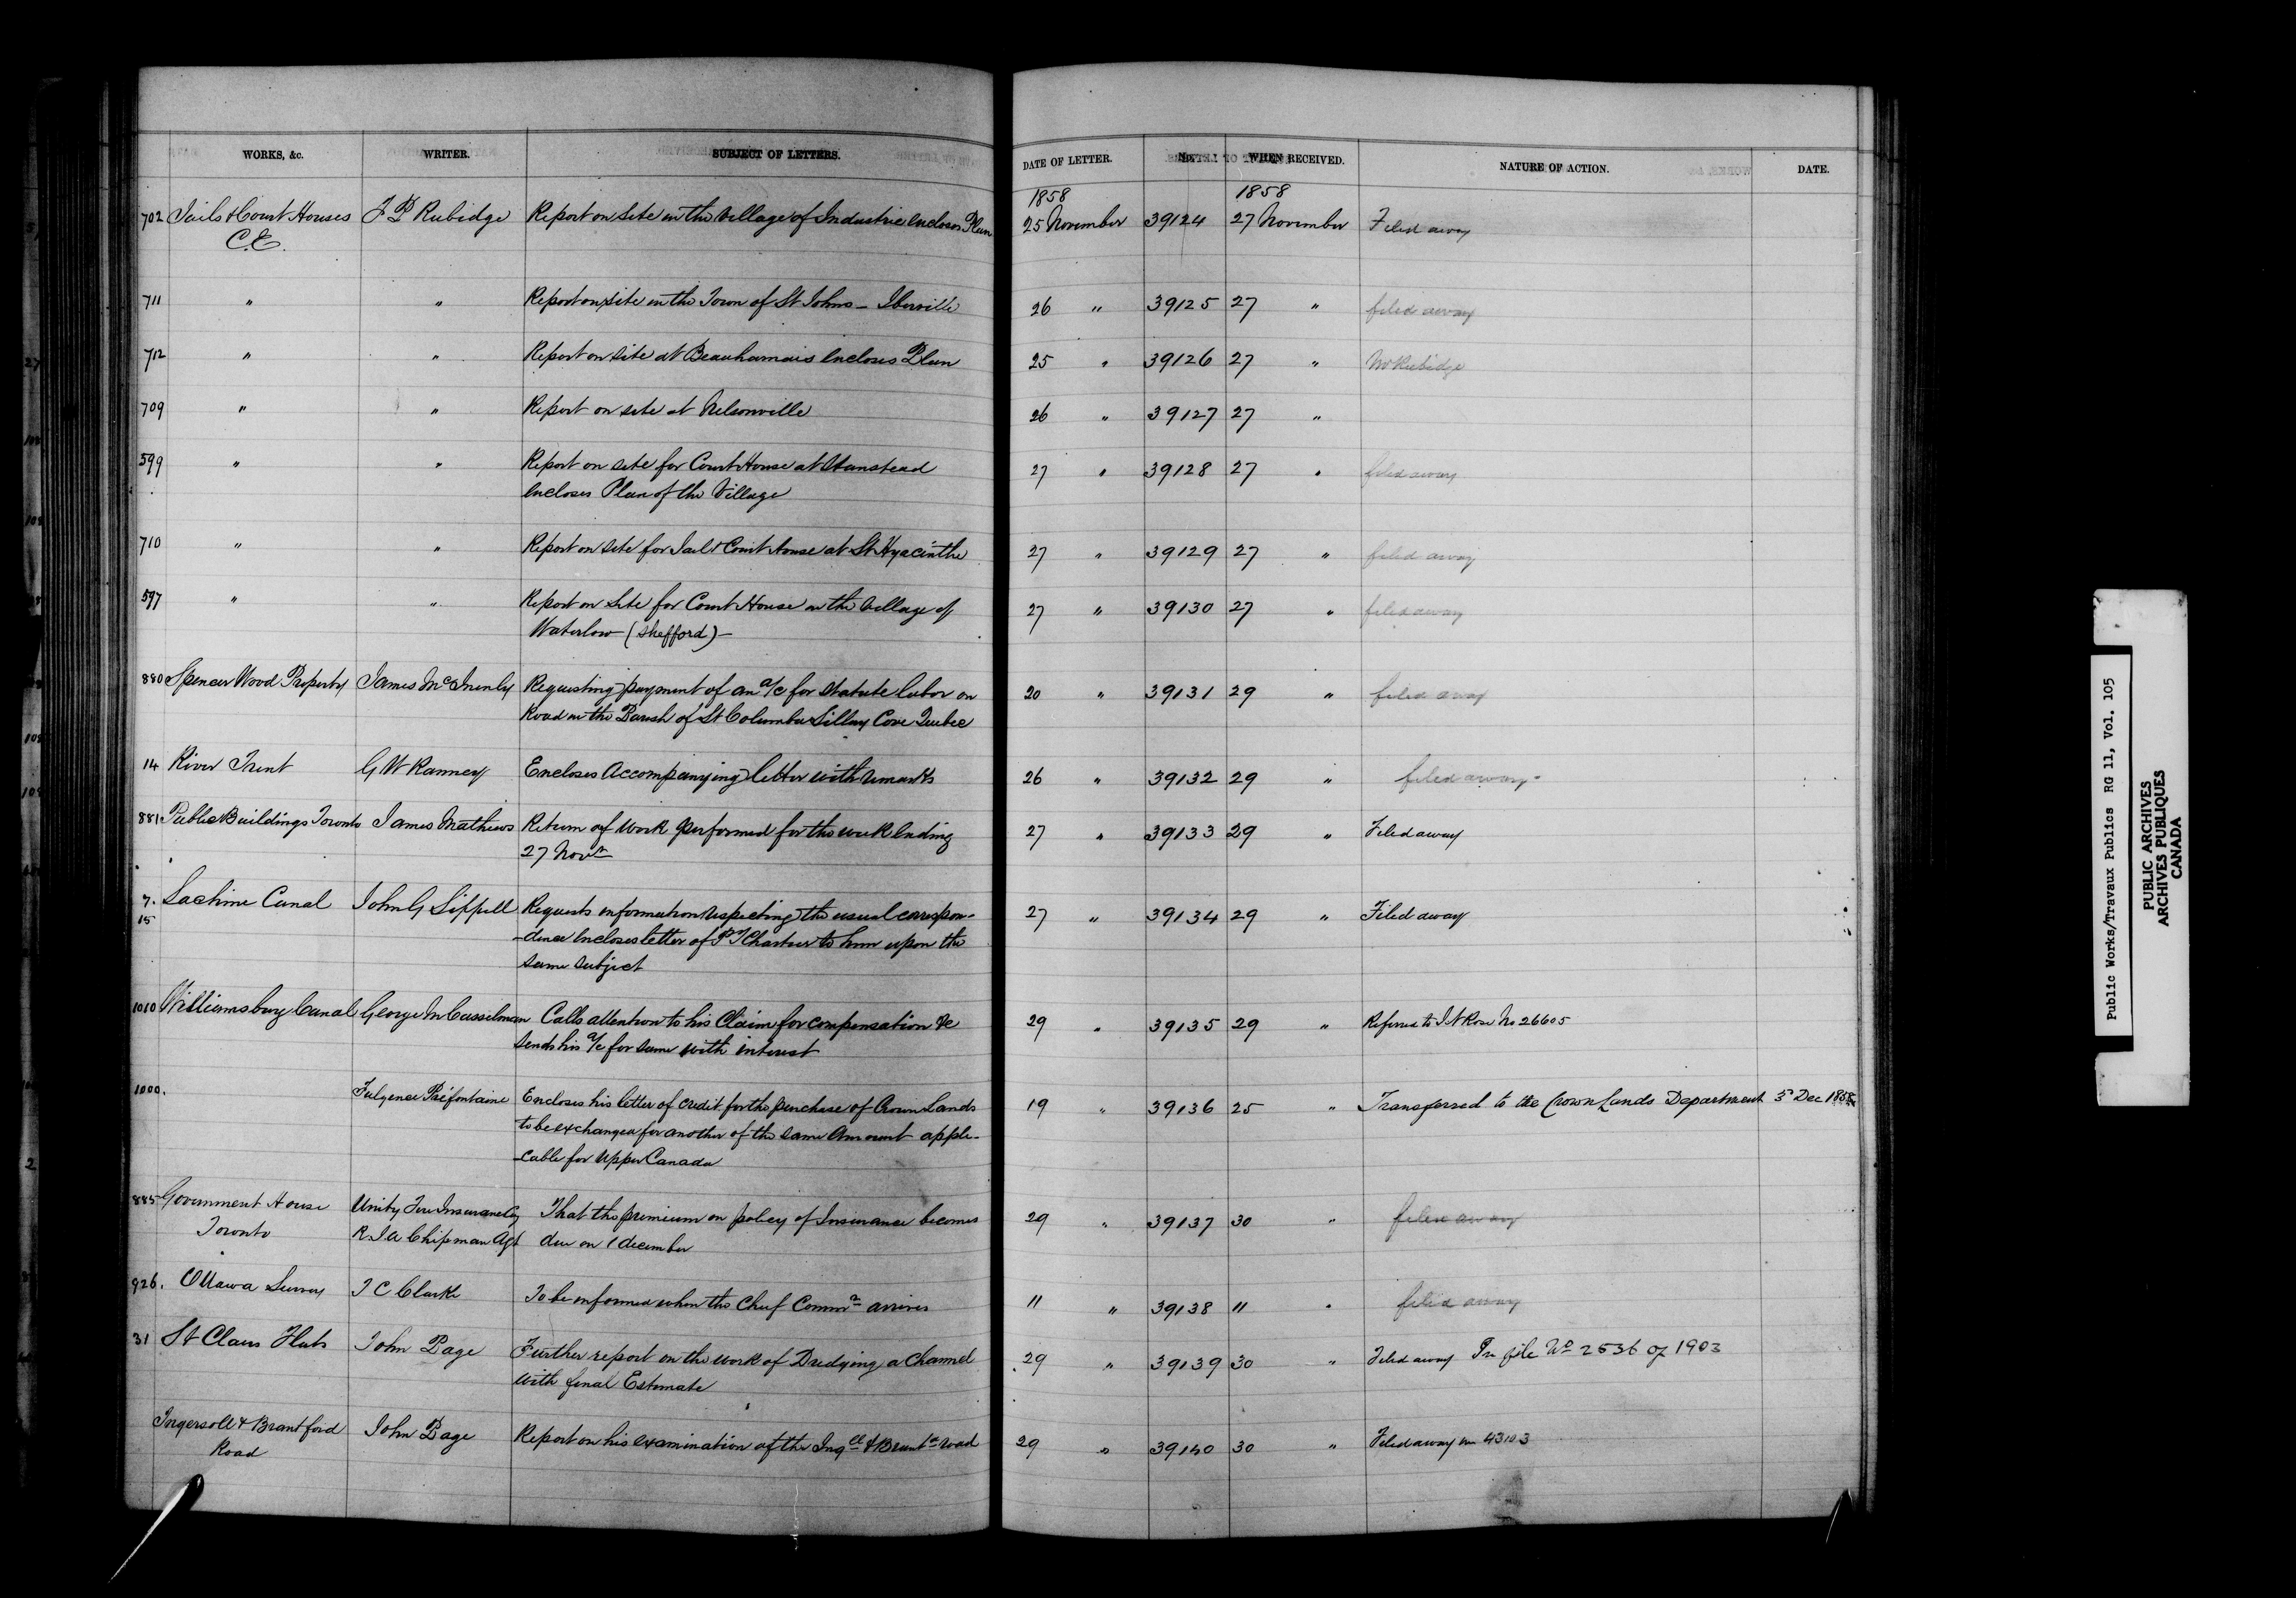 WORKS, &c. WRITER. SUBJECT OF LETTERS. DATE OF LETTER. No. WHEN RECEIVED. NATURE OF ACTION. DATE.
1858 1858
702 Jails & Court Houses F P Rubidge Report on Site in the Village of Industrie encloses Plan 25 November 39124 27 November Filed away
C.E.
711 " " Report on site in the Town of St Johns - Iberville 26 " 39125 27 " filed away
712 " " Report on site at Beauharnais encloses Plan 25 " 39126 27 " Mr Rubidge
709 " " Report on site at Nelsonville 26 " 39127 27 "
599 " " Report on site for Court House at Stanstead 27 " 39128 27 " filed away
encloses Plan of the Village
710 " " Report on site for Jail & Court House at St Hyacinthe 27 " 39129 27 " filed away
597 " " Report on Site for Court House in the Village of 27 " 39130 27 " filed away
Waterloo (Shefford) -
880 Spencer Wood Property James McInenly Requesting payment of an a/c for Statute labor on 20 " 39131 29 " filed away
Road in the Parish of St Columba Sillery Cove Quebec
14 River Trent G W Ranney Encloses Accompanying letter with remarks 26 " 39132 29 " filed away -
881 Public Buildings Toronto James Mathews Return of Work performed for the week ending 27 " 39133 29 " Filed away
27 Novr
7. Lachine Canal John G Sippell Requests information respecting the usual correspon- 27 " 39134 29 " Filed away
15 -dence encloses letter of to him upon the
same subject
1010 Williamsburg Canal George M Casselman Calls attention to his Claim for compensation &c 29 " 39135 29 " Referred to J N Rose No 26605
Sends his a/c for same with interest
1000. Fulgence Préfontaine Encloses his letter of credit for the purchase of Crown Lands 19 " 39136 25 " Transferred to the Crown Lands Department 3d Dec 1858
to be exchanged for another of the same Amount appli-
-cable for Upper Canada
885 Government House Unity Fire Insurance Coy That the premium on policy of Insurance becomes 29 " 39137 30 " filed away
Toronto Chipman Agt due on 1 december
926. Ottawa Survey T C Clarke To be informed when the Chief Commr arrives 11 " 39138 11 " filed away
31 St Clairs Flats John Page Further report on the work of Dredging a Channel 29 " 39139 30 " Filed away In file No 2536 of 1903
with final Estimate
Ingersoll & Brantford John Page Report on his examination of the Ingll & Brantd road 29 " 39140 30 " Filed away in 43103
Road
Public Works/Travaux Publics RG 11, Vol. 105
PUBLIC ARCHIVES
ARCHIVES PUBLIQUES
CANADA